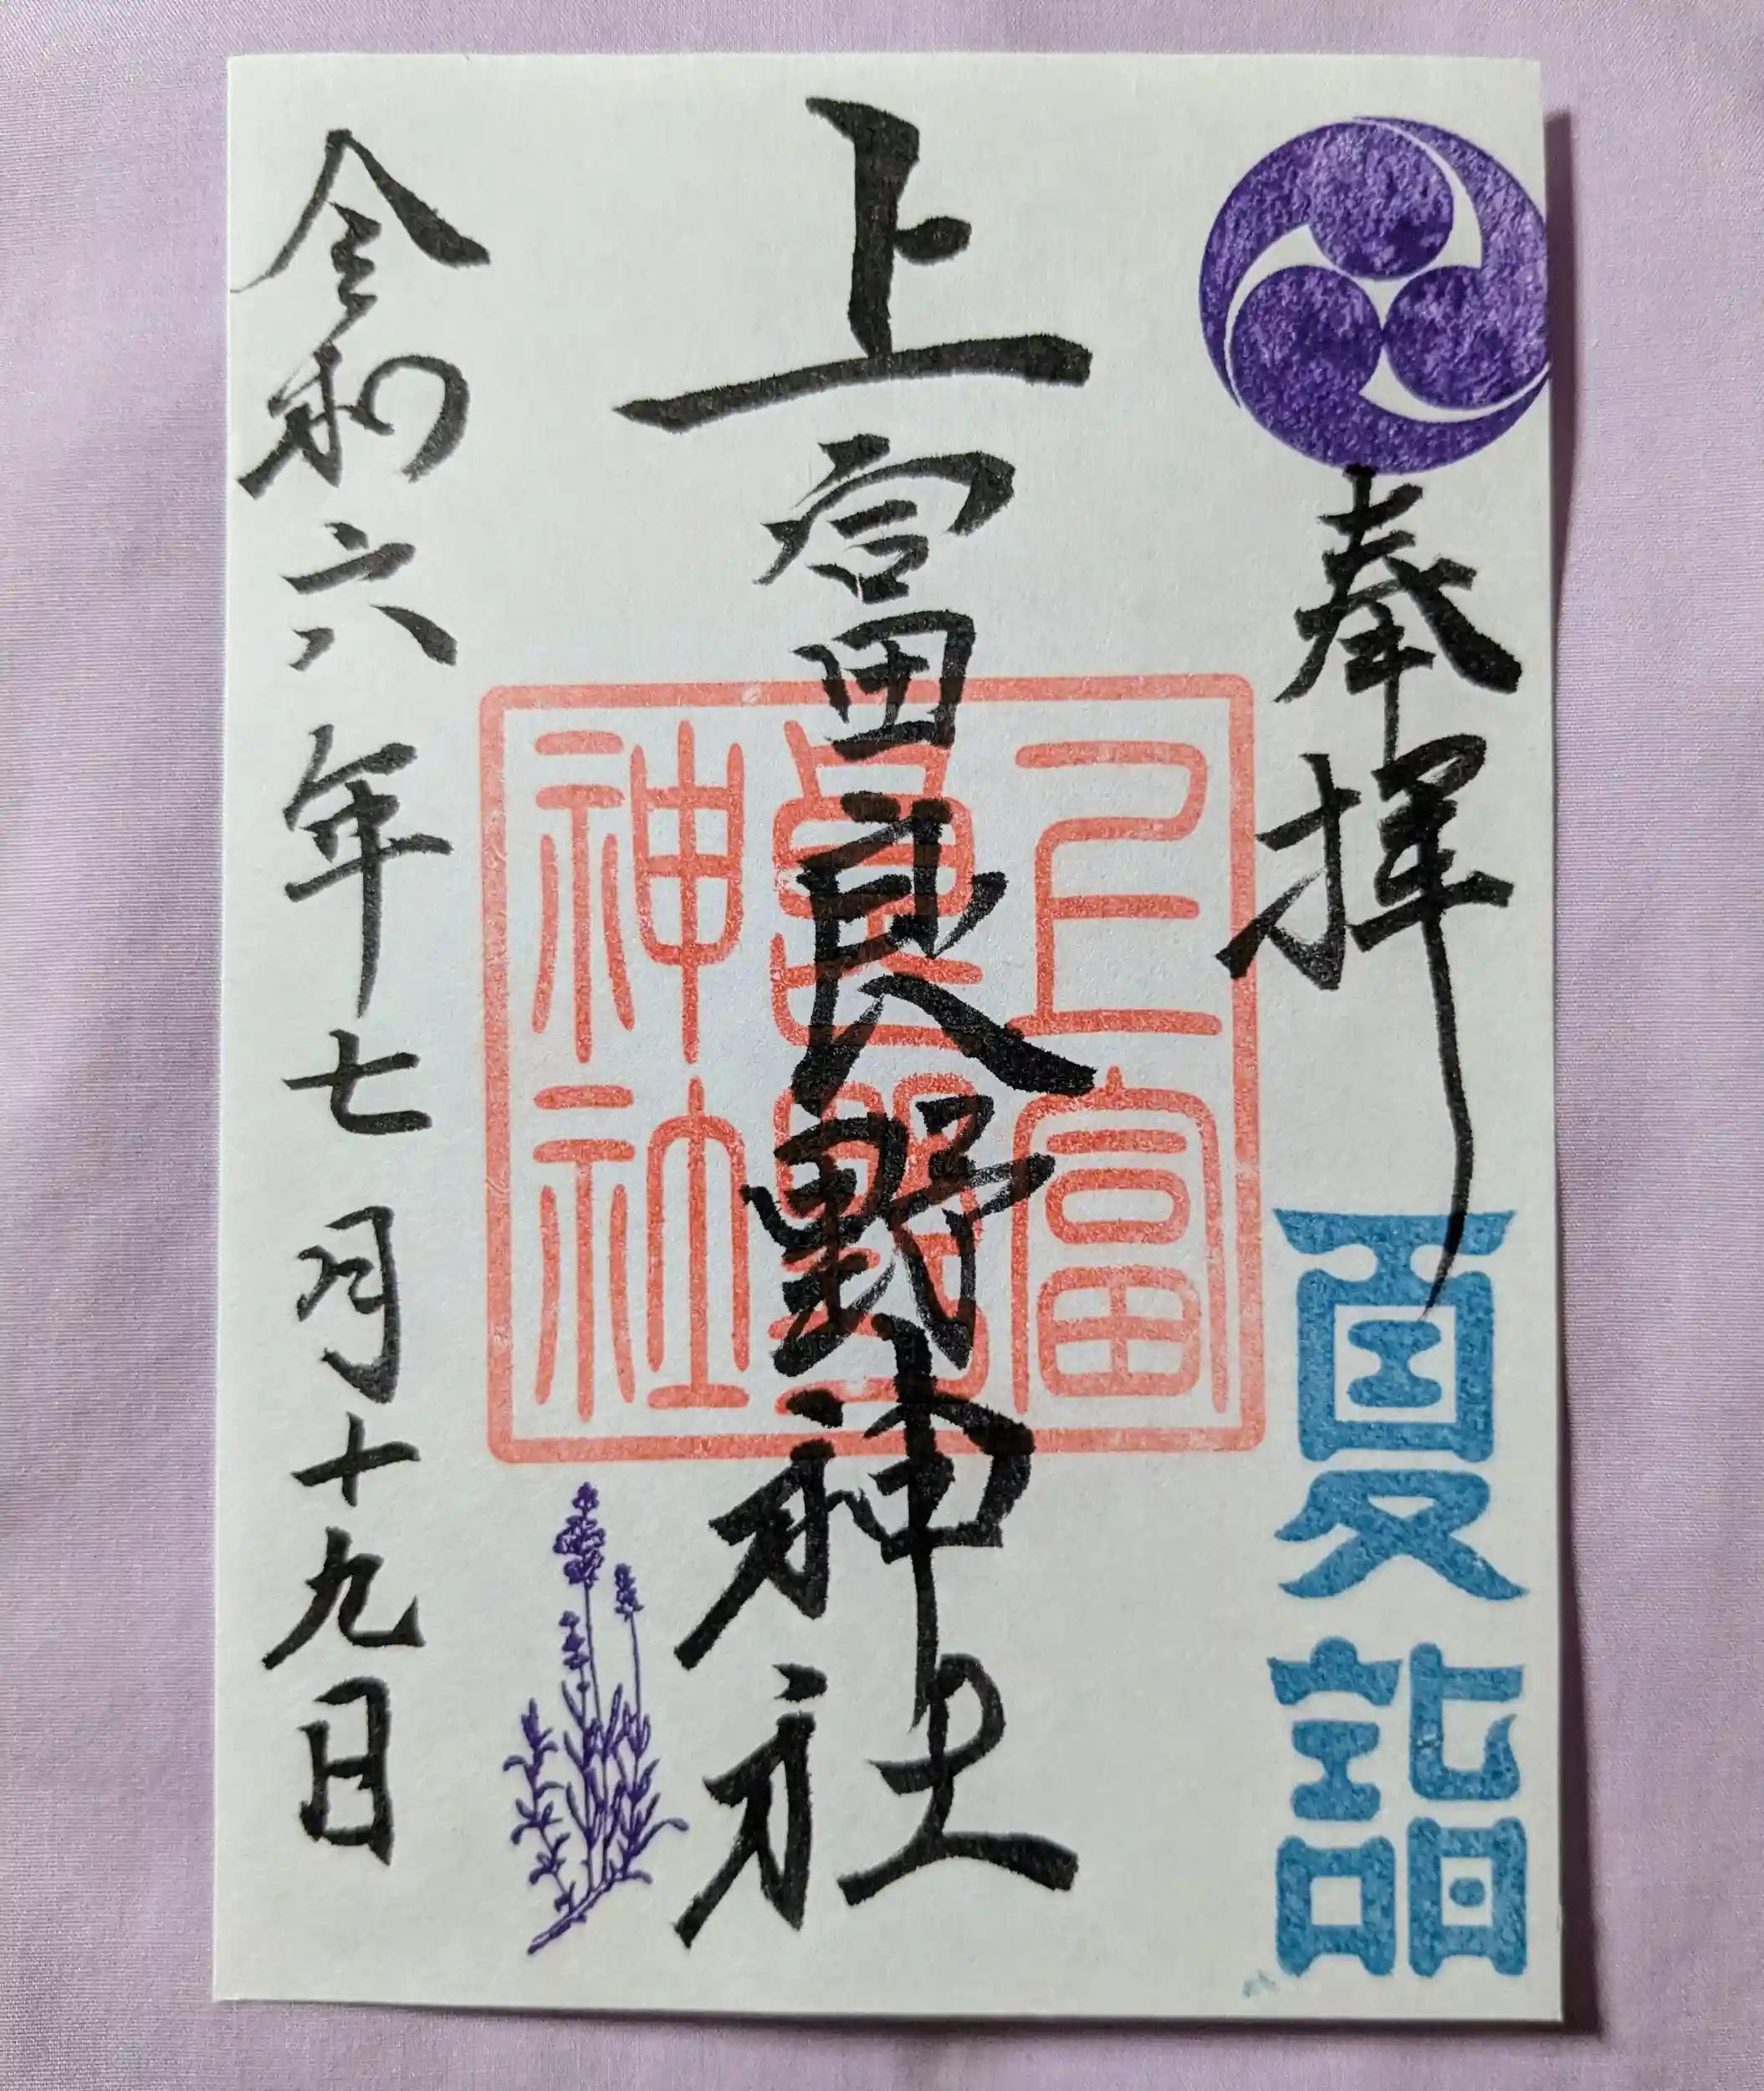 奉拝
夏詣
上富良野神社
上富
良野
神社
令和六年七月十九日